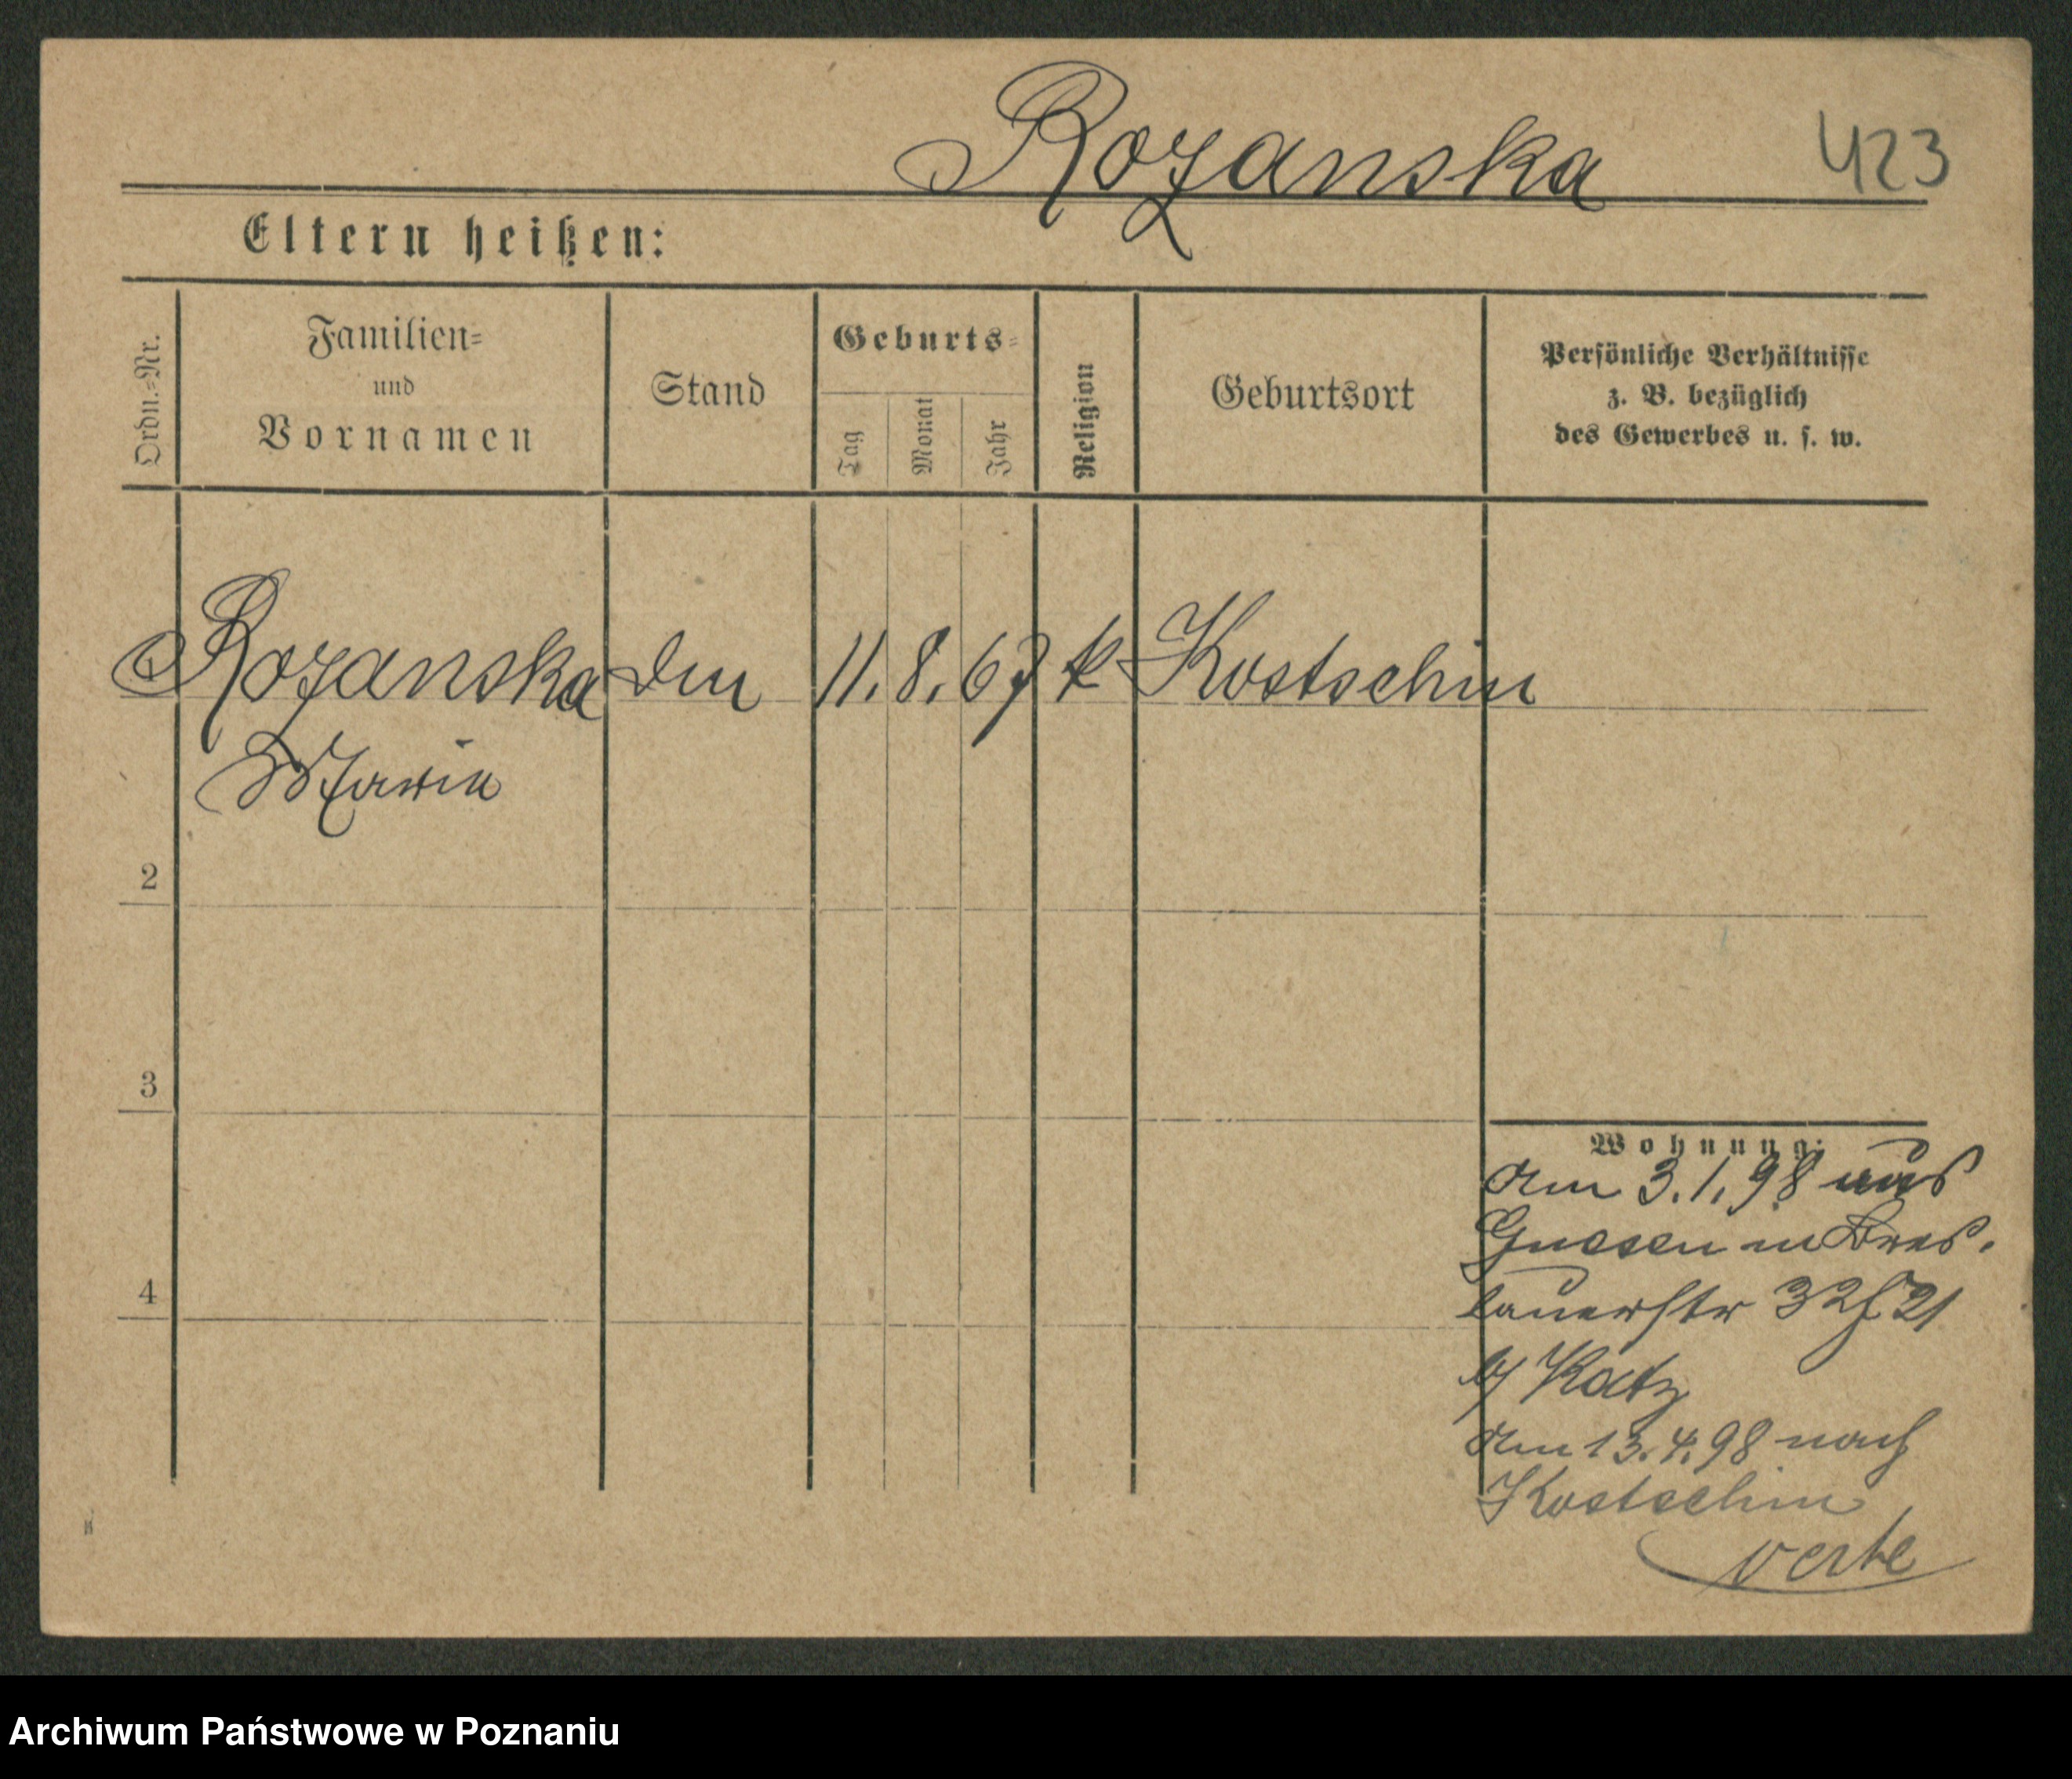 Rozanska 423
Eltern heißen:
Ordn.=Nr.
Familien=
und
Vornamen
Stand
Geburts=
Tag
Monat
Jahr
Religion
Geburtsort
Persönliche Verhältnisse
z. B. bezüglich
des Gewerbes u. s. w.
Rozanska 11. 8. 67 k Kostschin
Maria
2
3
4
Wohnung:
am 3.1.98 aus
Gnesen in Bres.
lauerstr 32 21
b/ Katz
am 13.4.98 nach
Kostschin
verte
Archiwum Państwowe w Poznaniu